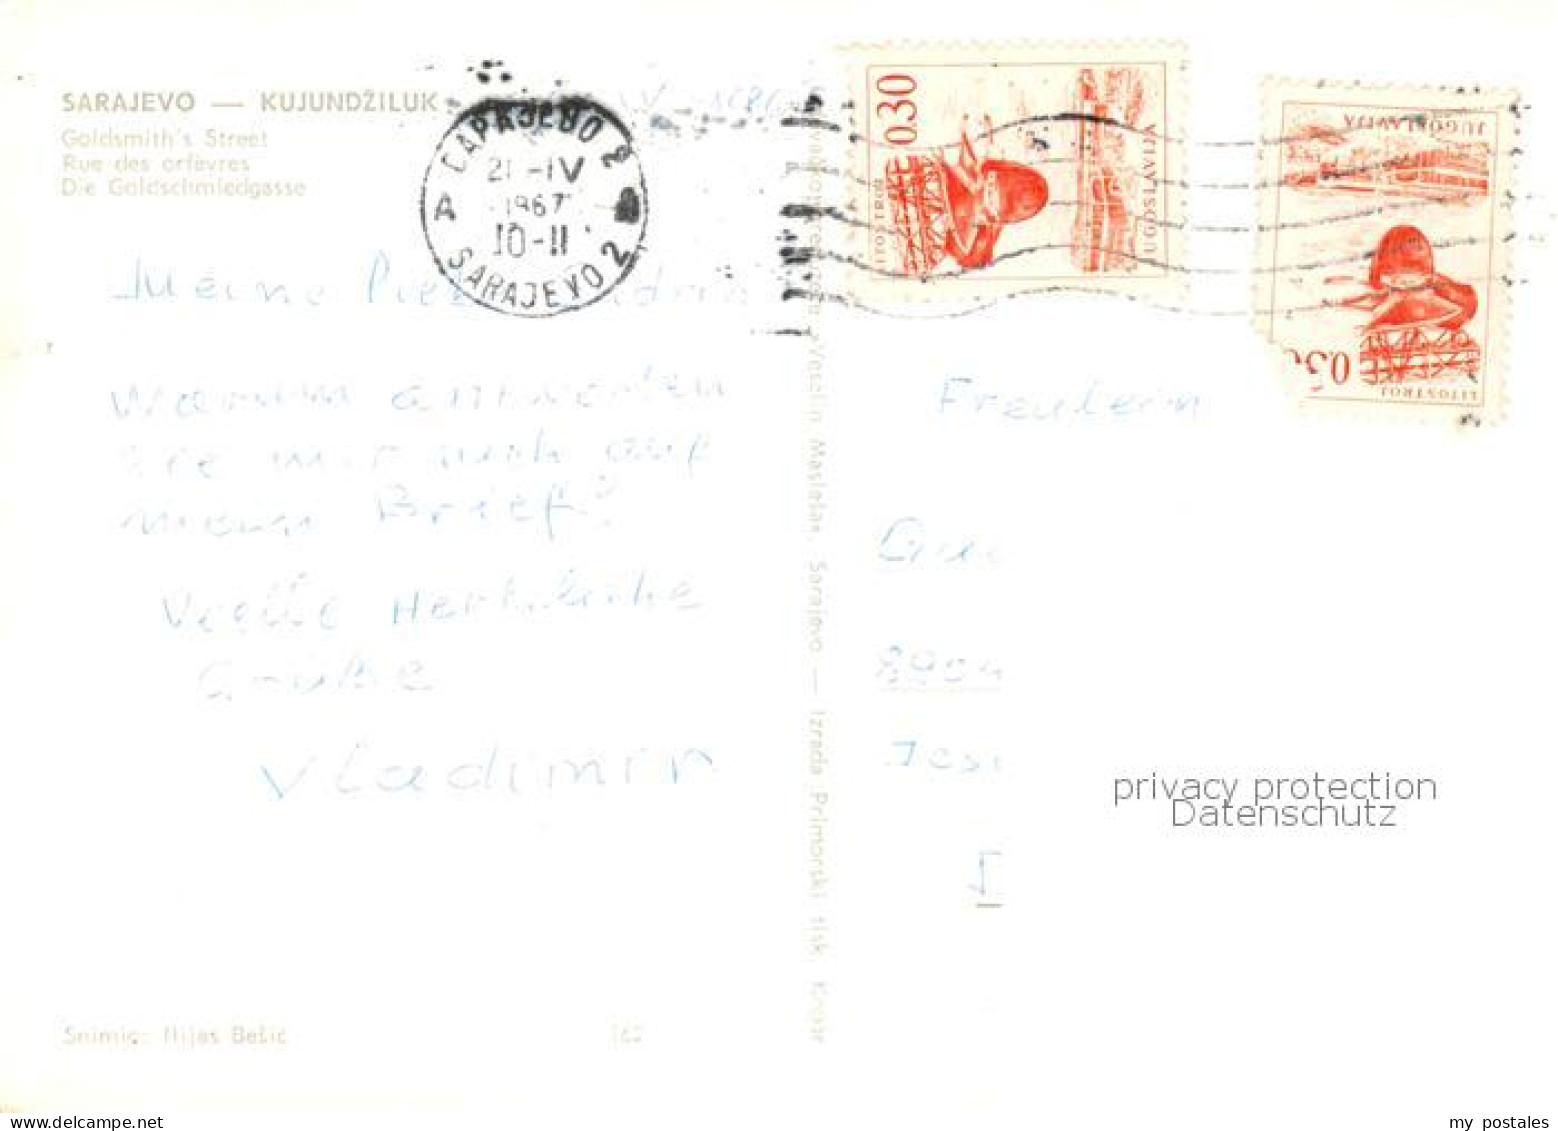 SARAJEVO — KUJUNDŽILUK
Goldsmith's Street
Rue des orfèvres
Die Goldschmiedgasse
САРАЈЕВО 2
21 -IV
1967
10-11
A
SARAJEVO 2
0.30
LITOSTROJ
JUGOSLAVIJA
JUGOSLAVIJA
LITOSTROJ
Meine
Warum antworten
Sie mir nich auf
Brief?
Vielle Herhzliche
Grüße
Vladimir
Freulein
8904
»Veselin Masleša«, Sarajevo — Izrada Primorski tisk, Koper
privacy protection
Datenschutz
Snimio: Ilijas Bešić
162
my postales